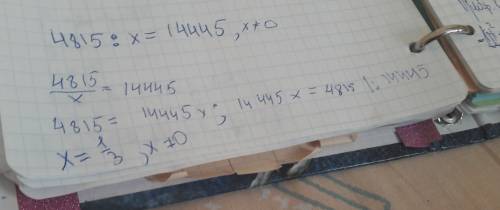 4815 : x = 14445, x≠0
4815/x = 14445
4815 = 14445x; 14445x = 4815 |: 14445
x = 1/3, x≠0